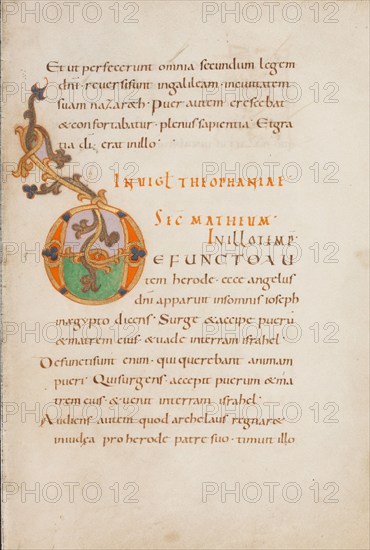 Et ut perfecerunt omnia secundum legem
dni reversi sunt in galileam · in civitatem
suam nazareth · Puer autem crescebat
& confortabatur · plenus sapientia Et gra
tia di erat in illo ·
IN VIGL THEOPHANIAE
SEC MATHEUM ·
IN ILLO TEMP
DEFUNCTO AU
tem herode · ecce angelus
dni apparuit in somnis ioseph
in ægypto dicens · Surge & accipe pueru
& matrem eius · & vade in terram israhel ·
Defuncti sunt enim · qui querebant animam
pueri Qui surgens · accepit puerum & ma
trem eius · & venit in terram israhel ·
Audiens autem quod archelaus regnar&
in iudea pro herode patre suo · timuit illo
PHOTO 12